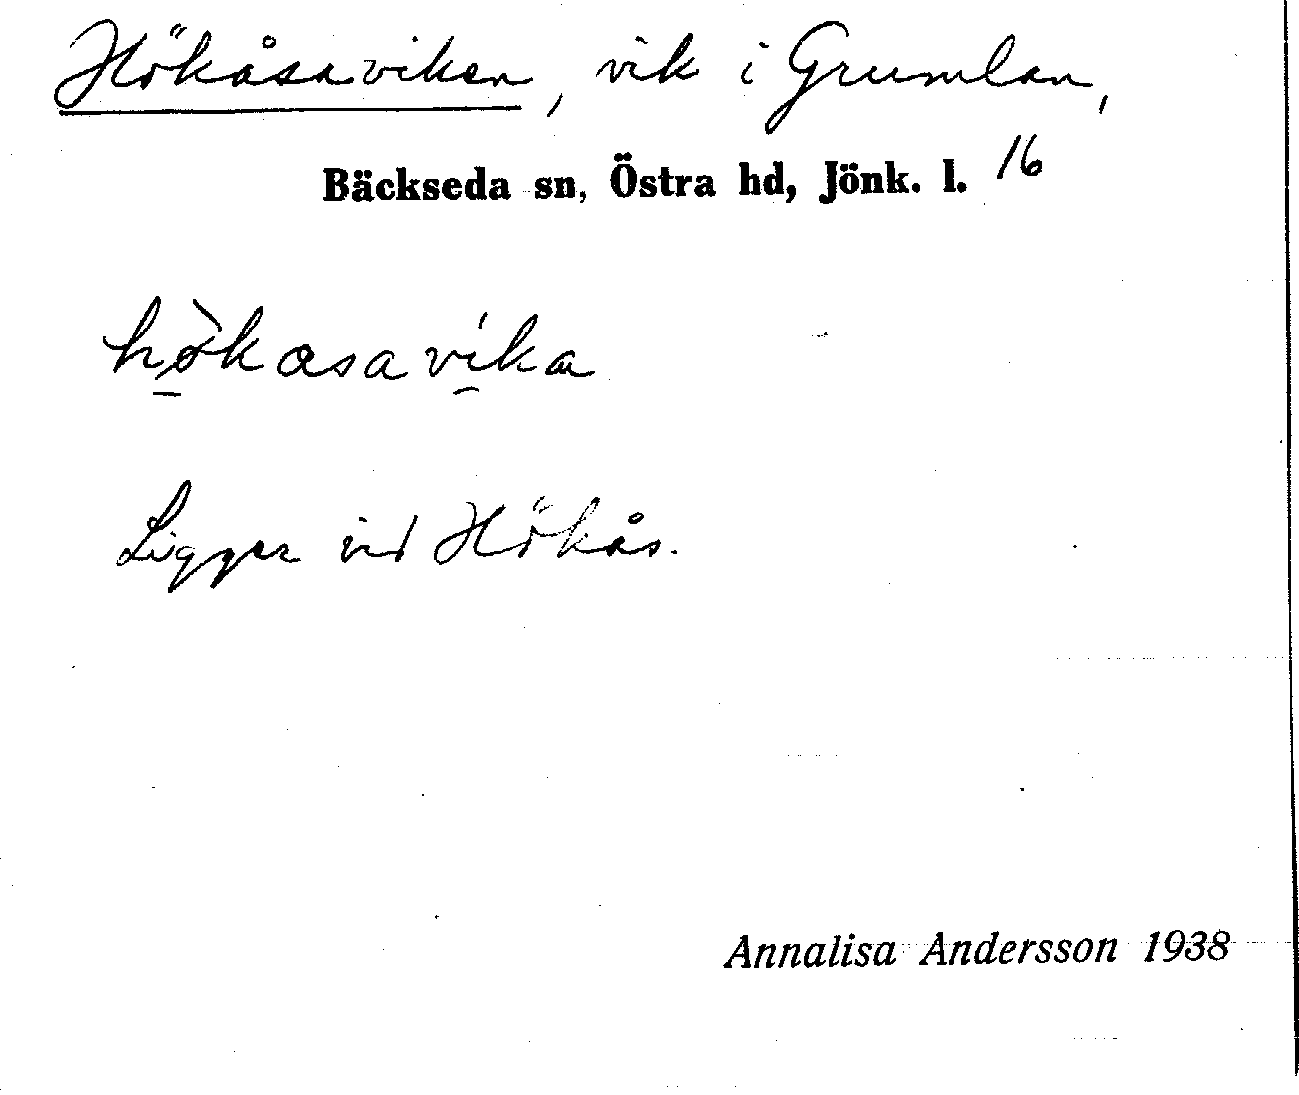 Hökåsaviken, vik i Grumlan,
Bäckseda sn, Östra hd, Jönk. l. 16
hø̀kasavíka
Ligger vid Hökås.
Annalisa Andersson 1938